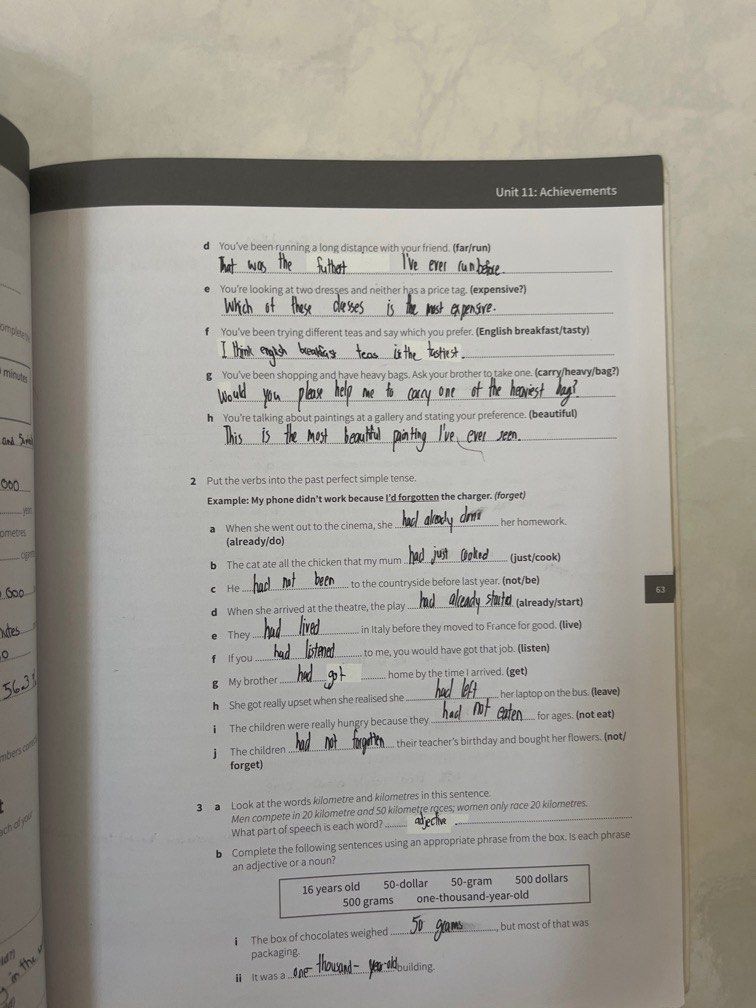 Unit 11: Achievements
d You've been running a long distance with your friend. (far/run)
That was the futhert I've ever run before.
e You're looking at two dresses and neither has a price tag. (expensive?)
Which of these dresses is the most expensive.
f You've been trying different teas and say which you prefer. (English breakfast/tasty)
I think english breakfast teas is the tastiest.
g You've been shopping and have heavy bags. Ask your brother to take one. (carry/heavy/bag?)
Would you please help me to carry one of the heaviest bag?
h You're talking about paintings at a gallery and stating your preference. (beautiful)
This is the most beautiful painting I've ever seen.
2 Put the verbs into the past perfect simple tense.
Example: My phone didn't work because I'd forgotten the charger. (forget)
a When she went out to the cinema, she had already done her homework.
(already/do)
b The cat ate all the chicken that my mum had just cooked (just/cook)
c He had not been to the countryside before last year. (not/be)
d When she arrived at the theatre, the play had already started (already/start)
e They had lived in Italy before they moved to France for good. (live)
f If you had listened to me, you would have got that job. (listen)
g My brother had got home by the time I arrived. (get)
h She got really upset when she realised she had left her laptop on the bus. (leave)
i The children were really hungry because they had not eaten for ages. (not eat)
j The children had not forgotten their teacher's birthday and bought her flowers. (not/
forget)
63
3 a Look at the words kilometre and kilometres in this sentence.
Men compete in 20 kilometre and 50 kilometre races; women only race 20 kilometres.
What part of speech is each word? adjective
b Complete the following sentences using an appropriate phrase from the box. Is each phrase
an adjective or a noun?
16 years old 50-dollar 50-gram 500 dollars
500 grams one-thousand-year-old
i The box of chocolates weighed 50 grams, but most of that was
packaging.
ii It was a one-thousand-year-old building.
minutes
000
563